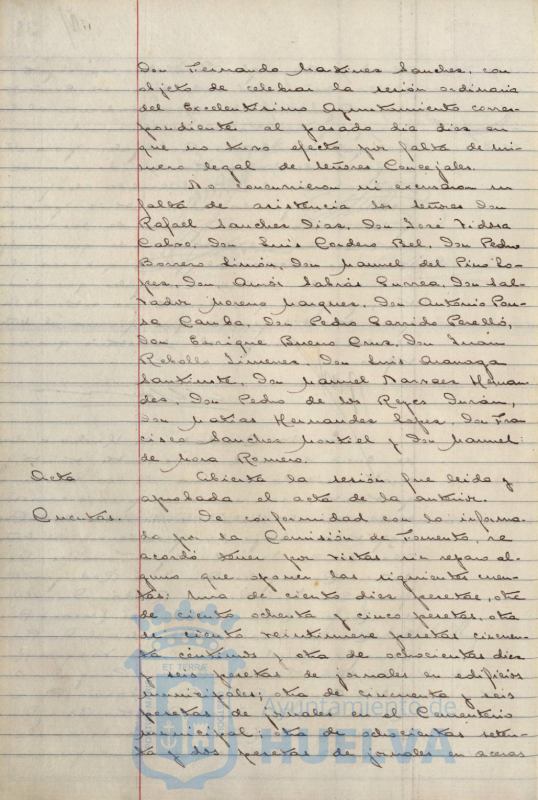 Don Fernando Martinez Sanchez, con
objeto de celebrar la sesión ordinaria
del Excelentísimo Ayuntamiento corres-
pondiente al pasado dia diez en
que no tuvo efecto por falta de nú-
mero legal de señores Concejales.
No concurrieron ni excusaron su
falta de asistencia los señores Don
Rafael Sanchez Diaz, Don José Vidosa
Calvo, Don Luis Cordero Bel, Don Pedro
Borrero Limón, Don Manuel del Pino Lo-
pez, Don Amós Sabrás Gurrea, Don Sal-
vador Moreno Marquez, Don Antonio Pou-
sa Camba, Don Pedro Garrido Perelló,
Don Enrique Bueno Cruz, Don Juan
Rebollo Jimenez, Don Luis
Don Manuel Narvaez Hernan-
dez, Don Pedro de los Reyes Durán,
Don Matias Hernandez Don Fran
cisco Sanchez Montiel y Don Manuel
de Mora Romero.
Acta Abierta la sesión fue leida y
aprobada el acta de la anterior.
Cuentas. De conformidad con lo informa-
do por la Comisión de Fomento, se
acordó tener por vistas sin reparo al-
guno que oponer las siguientes cuen-
tas: Una de ciento diez pesetas, otra
de ciento ochenta y cinco pesetas, otra
de ciento veintinueve pesetas cincuen-
ta céntimos y otra de ochocientas diez
y seis pesetas de jornales en edificios
municipales; otra de cincuenta y seis
pesetas de jornales en el Cementerio
municipal; otra de ochocientas seten-
ta y dos pesetas de jornales en aceras
ET TERRÆ
Ayuntamiento de
HUELVA